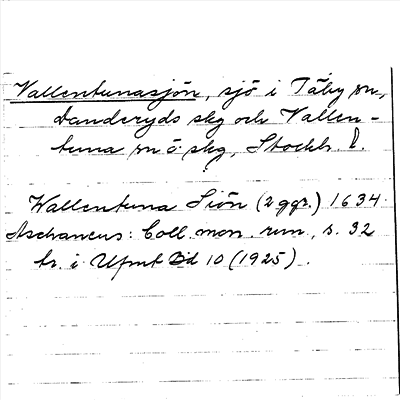 Vallentunasjön, sjö i Täby sn,
Danderyds skg och Vallen-
tuna sn o. skg, Stockh. l.
Wallentuna Siön (2 ggr.) 1634.
Aschaneus: Coll. mon. run., s. 32
tr. i Ufmt Bd 10 (1925).